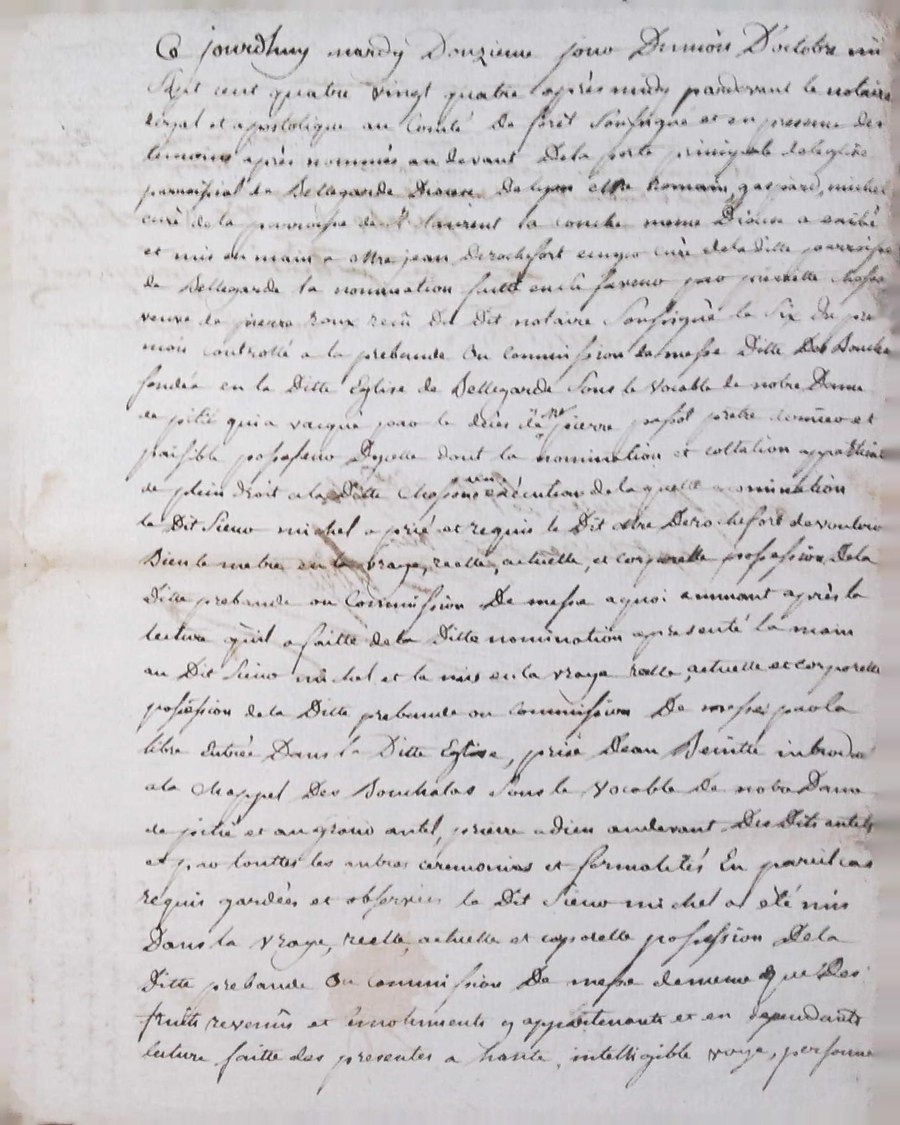 Ce jourdhuy mardy Douzieme jour Dumois D'octobre mil
Sept cent quatre vingt quatre après midy pardevant le notaire
royal et apostolique au Comté de forêt Soussigné et en presence des
temoins après nommés audevant Dela porte principale deleglise
parroissial de Bellegarde Diocese delyon Mre Romain, gaspard, michel
curé de la parroisse de St laurent la conche meme Diocese a exibé
et mis en main a Mre jean Derochefort curé dela ditte parroisse
de Bellegarde la nomination faitte en sa faveur par pierrette Chosson
veuve de pierre roux recû Du Dit notaire Soussigné le Six Du pnt
mois controllé a la prebande ou Commission de messe Ditte Des Bouchalas
fondée en la Ditte Eglise de Bellegarde Sous le vocable de notre Dame
de pitié qui a vacqué par le décès de mre pierre passot pretre dernier et
paisible possesseur Dycelle dont la nomination et collation appartient
de plein droit ala Ditte Chosson en exécution delaquelle nomination
le Dit Sieur michel a prié et requis le Dit Mre Derochefort devouloir
Bien le metre en la vraye, reelle, actuelle, et corporelle possession Dela
Ditte prebande ou Commission De messe aquoi annuant après la
lecture qu'il a faitte dela Ditte nomination a presenté la main
au Dit Sieur michel et la mis en la vraye reelle, actuelle et corporelle
possession dela Ditte prebande ou Commission De messe, parla
libre Entrée Dans la Ditte Eglise, prise D'eau Benitte introduit
ala chappel Des Bouchalas Sous le vocable De notre Dame
de pitié et au grand autel, prierre a dieu audevant Des Dits autels
et par touttes les autres ceremonies et formalités En pareil cas
requis gardées et observées le Dit Sieur michel a été mis
Dans la vraye, reelle, actuelle et corporelle possession Dela
Ditte prebande ou commission De messe dememe que Des
fruits revenûs et émoluments y appartenants et en dependants
lecture faitte des presentes a haute, intelligible voye, personne